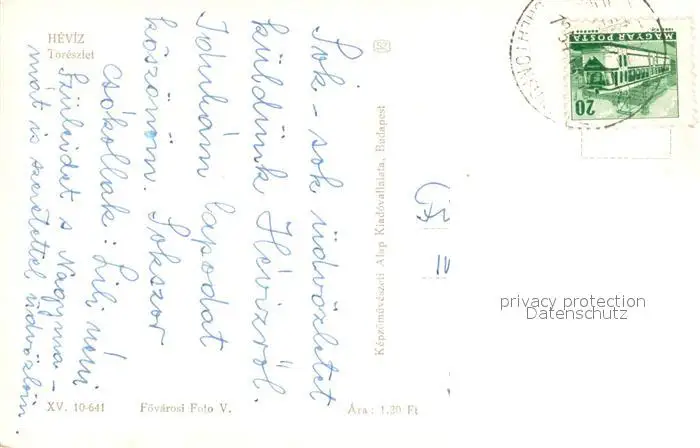 HÉVÍZ
Tórészlet
Sok-sok üdvözletet
küldünk Hévízről.
Tihanyi lapodat
köszönöm. Sokszor
csókollak: Lili néni
Szüleidet s Nagyma-
mát is szeretettel üdvözlöm.
XV. 10-641
Fővárosi Foto V.
Ára: 1.20 Ft
Képzőművészeti Alap Kiadóvállalata, Budapest
MAGYAR POSTA
20
privacy protection
Datenschutz